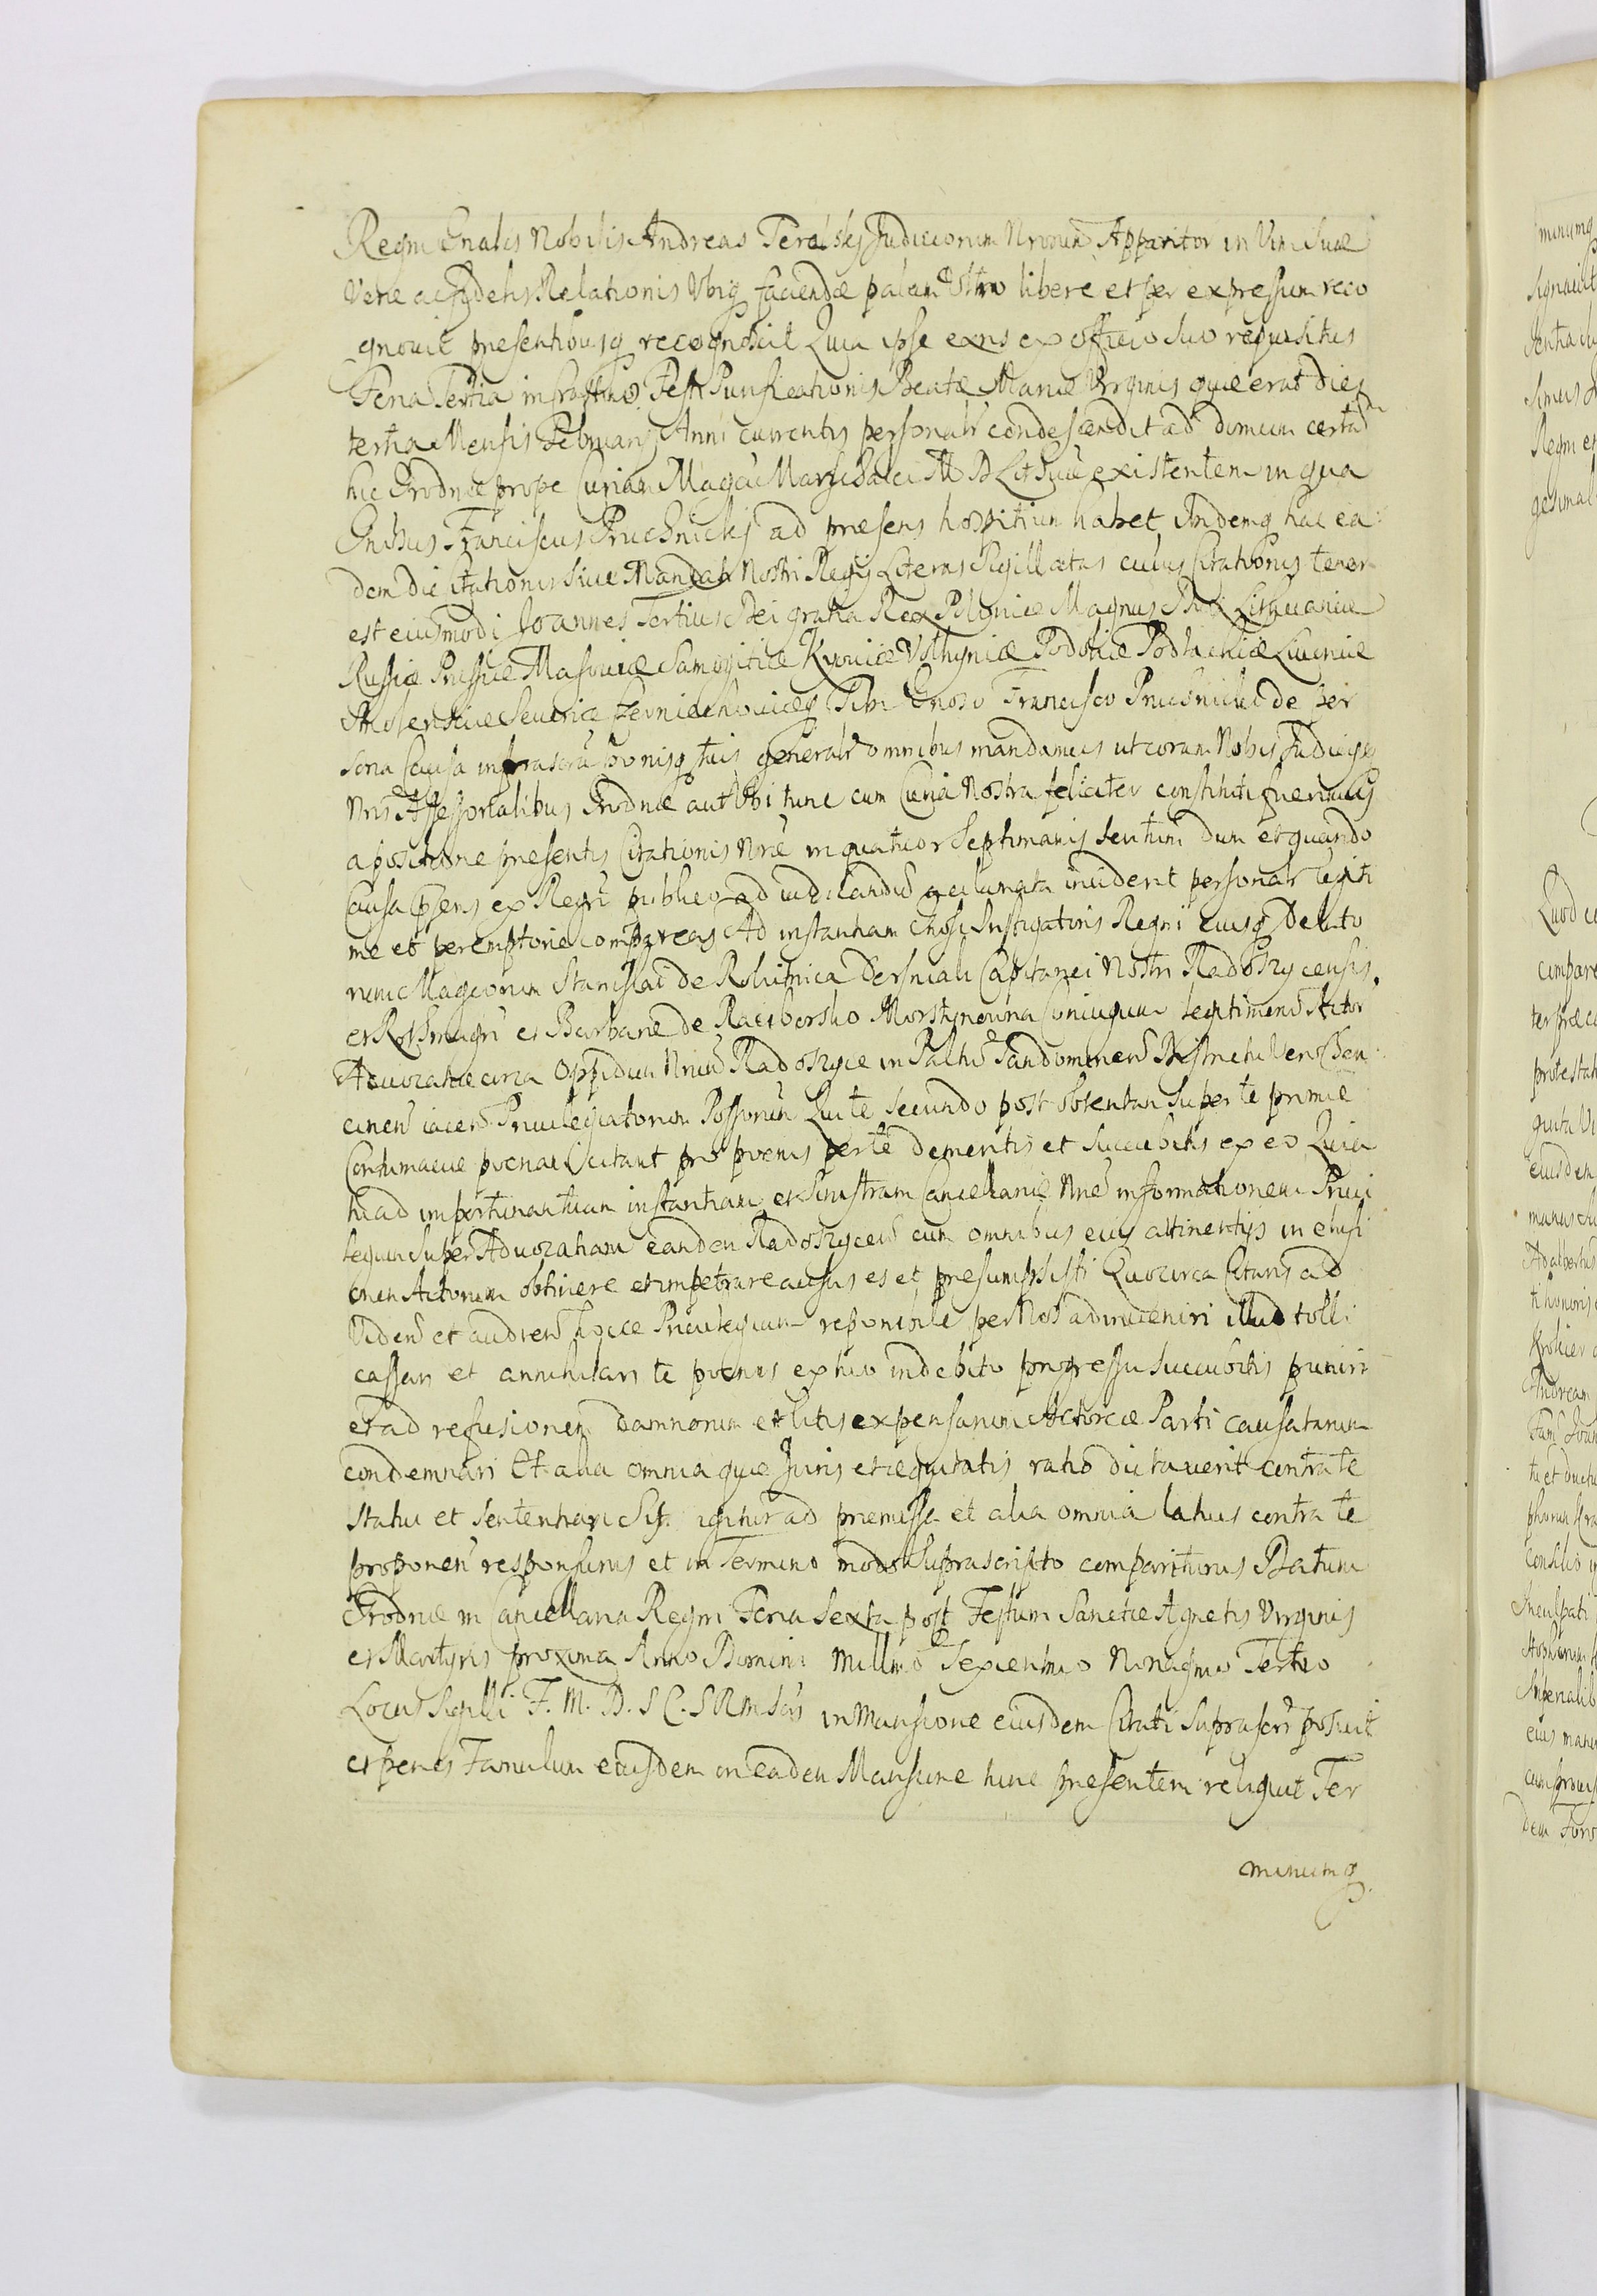 Regni Gnalis Nobilis Andreas Judiciorum Nrorum Apparitor in Vim Suae
Verae ac fidelis Relationis Vbiq faciendae palam Vltro libere et per expressum reco
gnouit presentibusq recognoscit Quia ipse exns ex officio suo requisitus
Feria Tertia in crastino Festi Purificationis Beatae Mariae Virginis quae erat dies
tertia Mensis Februarij Anni currentis personalr condescendit ad domum certã
hic Grodnae prope Curiam Magci Marschalci M D Lithuae existentem in qua
Gnosus Franciscus Pruchnickj ad presens hospitium habet Ibidemq hac ea
dem die Citationis siue Mandati Nostri Regij Literas Sigillatas cuius Citationis tenor
est eiusmodi Joannes Tertius Dei gratia Rex Poloniae Magnus Dux Lithuaniae
Russiae Prussiae Masouiae Samogitiae Kyouiae Volhyniae Podoliae Podlachiae Liuoniae
Smolensciae Seueriae Czerniechouiaeq Tibi Gnoso Francisco Pruchnicki de per
sona causa infrascrã bonisq tuis generalr omnibus mandamus ut coram Nobis Judicijsq
Nris Assessorialibus Grodnae aut Vbi tunc cum Curia Nostra feliciter constituti fuerimus
a positione presentis Citationis Nrae in quatuor Septimanis seu tum dum et quando
Causa presens ex Regro publico ad iudicandum acclamata inciderit personalr legiti
me et peremptorie compareas Ad instantiam Gnosi Instigatoris Regni eiusq Delato
rum Magcorum Stanislai de Rohitnica Dersniak Capitanei Nostri Radoszycensis
et Rothmagri et Barbarae de Raciborsko Morstynowna Coniugum legitimorũ Actor
Aduocatiae circa Oppidum Nrum Radoszyce in Palnũ Sandomirien Districtu Vero Chen
cinen iacen Priuilegiatorum Possorum Qui te secundo post obtentam super te primae
Contumaciae poenam citant pro poenis per te demeritis et succubitis ex eo Quia
tu ad importunantiam instantiam et sinistram Cancellariae Nrae informationem Priui
legium super Aduocatiam eandem Radoszycen cum omnibus eius attinentijs in elusi
onem Actorum obtinere et impetrare ausus es et presumpsisti Quocirca Citaris ad
Viden et audien hocce Priuilegium reponibile per Nos adinueniri illud tolli
cassari et annihilari te poenis ex hoc indebito progressu succubitis puniri
et ad refusionem damnorum et litis expensarum Actoreae Parti causatarum
condemnari Et alia omnia quae Juris et aequitatis ratio dictauerit contra te
statui et sententiari Sis igitur ad premissa et alia omnia latius contra te
proponen responsurus et in Termino modo suprascripto compariturus Datum
Grodnae in Cancellaria Regni Feria Sexta post Festum Sanctae Agnetis Virginis
et Martyris proxima Anno Domini Millmo Sexcentmo Nonagmo Tertio
Locus Sigilli F. M. D. S C. S R M Scris in Mansione eiusdem Citati suprascri posuit
et penes Famulum eiusdem in eadem Mansione tunc presentem reliquit Ter
minumq